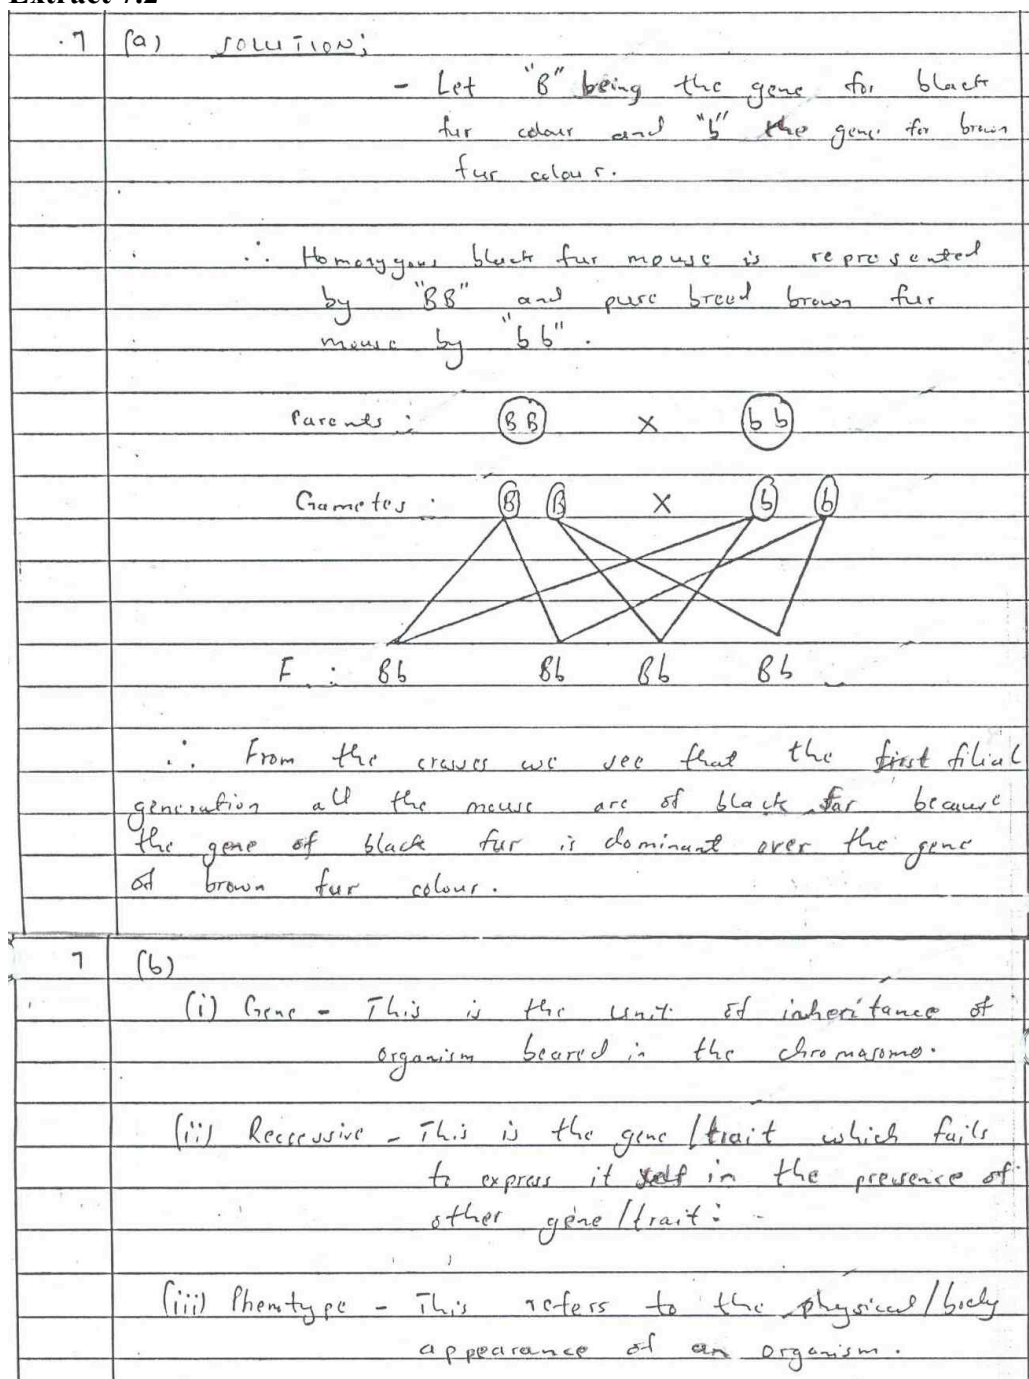 Extract 7.2
.7 (a) SOLUTION;
- Let "B" being the gene for black
fur colour and "b" the gene for brown
fur colour.
∴ Homozygous black fur mouse is represented
by "BB" and pure breed brown fur
mouse by "bb".
Parents : BB X bb
Gametes : B B X b b
F : Bb Bb Bb Bb
∴ From the crosses we see that the first filial
generation all the mouse are of black fur because
the gene of black fur is dominant over the gene
of brown fur colour.
7 (b)
(i) Gene - This is the unit of inheritance of
organism beared in the chromosome.
(ii) Reccessive - This is the gene/trait which fails
to express it self in the presence of
other gene/trait.
(iii) Phenotype - This refers to the physical/body
appearance of an organism.